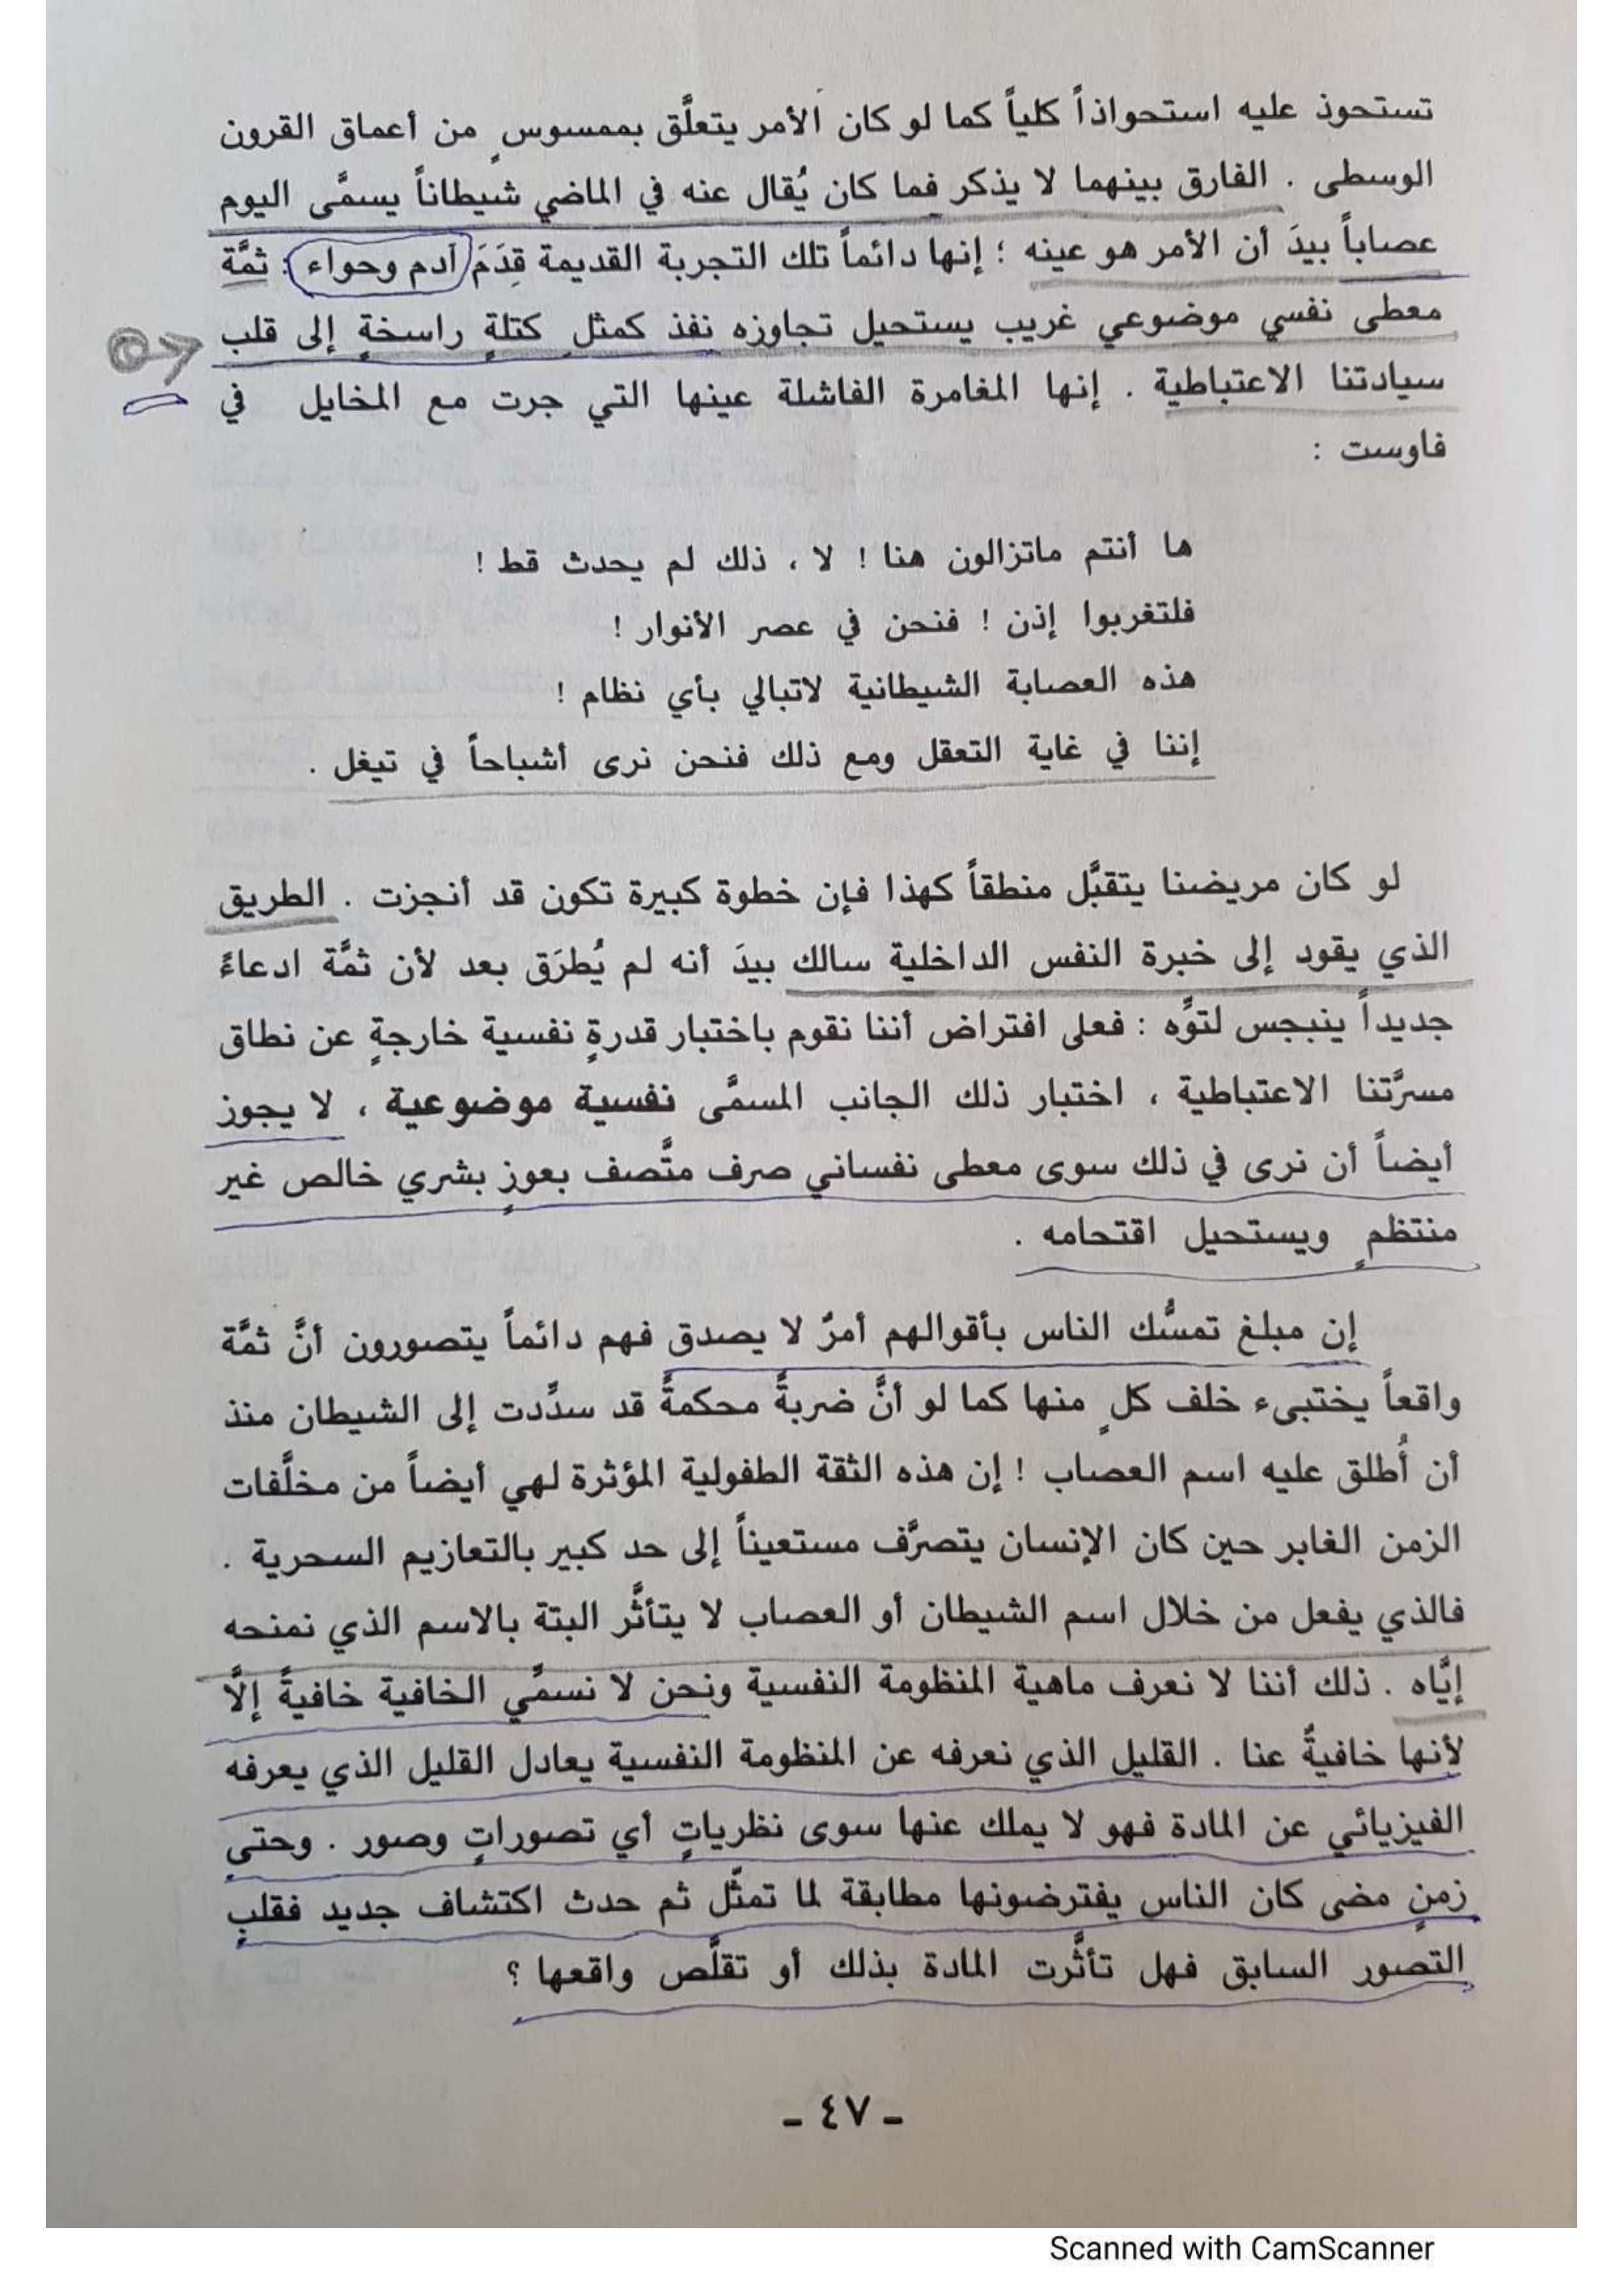 تستحوذ عليه استحواذاً كلياً كما لو كان الأمر يتعلَّق بممسوسٍ من أعماق القرون
الوسطى . الفارق بينهما لا يذكر فما كان يُقال عنه في الماضي شيطاناً يسمَّى اليوم
عصاباً بيدَ أن الأمر هو عينه ؛ إنها دائماً تلك التجربة القديمة قِدَمَ آدم وحواء : ثمَّة
معطى نفسي موضوعي غريب يستحيل تجاوزه نفذ كمثلِ كتلةٍ راسخةٍ إلى قلب
سيادتنا الاعتباطية . إنها المغامرة الفاشلة عينها التي جرت مع المخايل في
فاوست :
ها أنتم ماتزالون هنا ! لا ، ذلك لم يحدث قط !
فلتغربوا إذن ! فنحن في عصر الأنوار !
هذه العصابة الشيطانية لاتبالي بأي نظام !
إننا في غاية التعقل ومع ذلك فنحن نرى أشباحاً في تيغل .
لو كان مريضنا يتقبَّل منطقاً كهذا فإن خطوة كبيرة تكون قد أنجزت . الطريق
الذي يقود إلى خبرة النفس الداخلية سالك بيدَ أنه لم يُطرَق بعد لأن ثمَّة ادعاءً
جديداً ينبجس لتوِّه : فعلى افتراض أننا نقوم باختبار قدرةٍ نفسية خارجةٍ عن نطاق
مسرَّتنا الاعتباطية ، اختبار ذلك الجانب المسمَّى نفسية موضوعية ، لا يجوز
أيضاً أن نرى في ذلك سوى معطى نفساني صرف متَّصف بعوزٍ بشري خالص غير
منتظمٍ ويستحيل اقتحامه .
إن مبلغ تمسُّك الناس بأقوالهم أمرٌ لا يصدق فهم دائماً يتصورون أنَّ ثمَّة
واقعاً يختبىء خلف كلٍ منها كما لو أنَّ ضربةً محكمةً قد سدِّدت إلى الشيطان منذ
أن أُطلق عليه اسم العصاب ! إن هذه الثقة الطفولية المؤثرة لهي أيضاً من مخلَّفات
الزمن الغابر حين كان الإنسان يتصرَّف مستعيناً إلى حد كبير بالتعازيم السحرية .
فالذي يفعل من خلال اسم الشيطان أو العصاب لا يتأثَّر البتة بالاسم الذي نمنحه
إيَّاه . ذلك أننا لا نعرف ماهية المنظومة النفسية ونحن لا نسمِّي الخافية خافيةً إلَّا
لأنها خافيةٌ عنا . القليل الذي نعرفه عن المنظومة النفسية يعادل القليل الذي يعرفه
الفيزيائي عن المادة فهو لا يملك عنها سوى نظرياتٍ أي تصوراتٍ وصور . وحتى
زمنٍ مضى كان الناس يفترضونها مطابقة لما تمثَّل ثم حدث اكتشاف جديد فقلب
التصور السابق فهل تأثَّرت المادة بذلك أو تقلَّص واقعها ؟
- ٤٧ -
Scanned with CamScanner